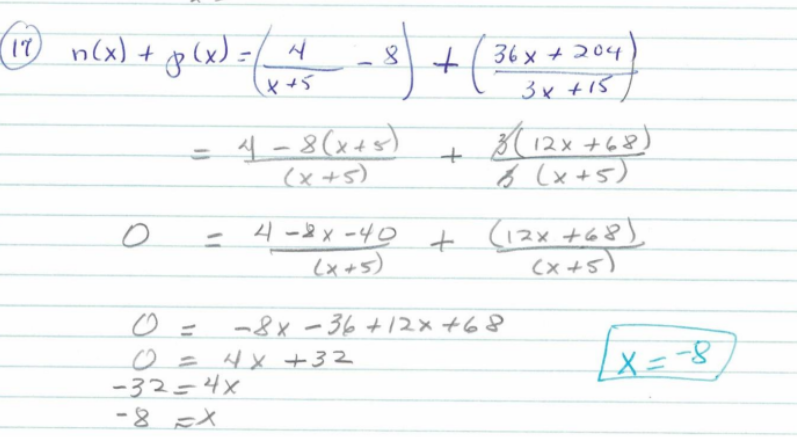 17 n(x) + g(x) = (4/(x+5) - 8) + ((36x + 204)/(3x + 15))
= (4 - 8(x+5))/(x+5) + 3(12x+68)/3(x+5)
0 = (4 - 8x - 40)/(x+5) + (12x + 68)/(x+5)
0 = -8x - 36 + 12x + 68
0 = 4x + 32
x = -8
-32 = 4x
-8 = x